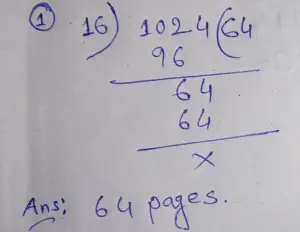 ① 16) 1024 (64
96
64
64
x
Ans: 64 pages.